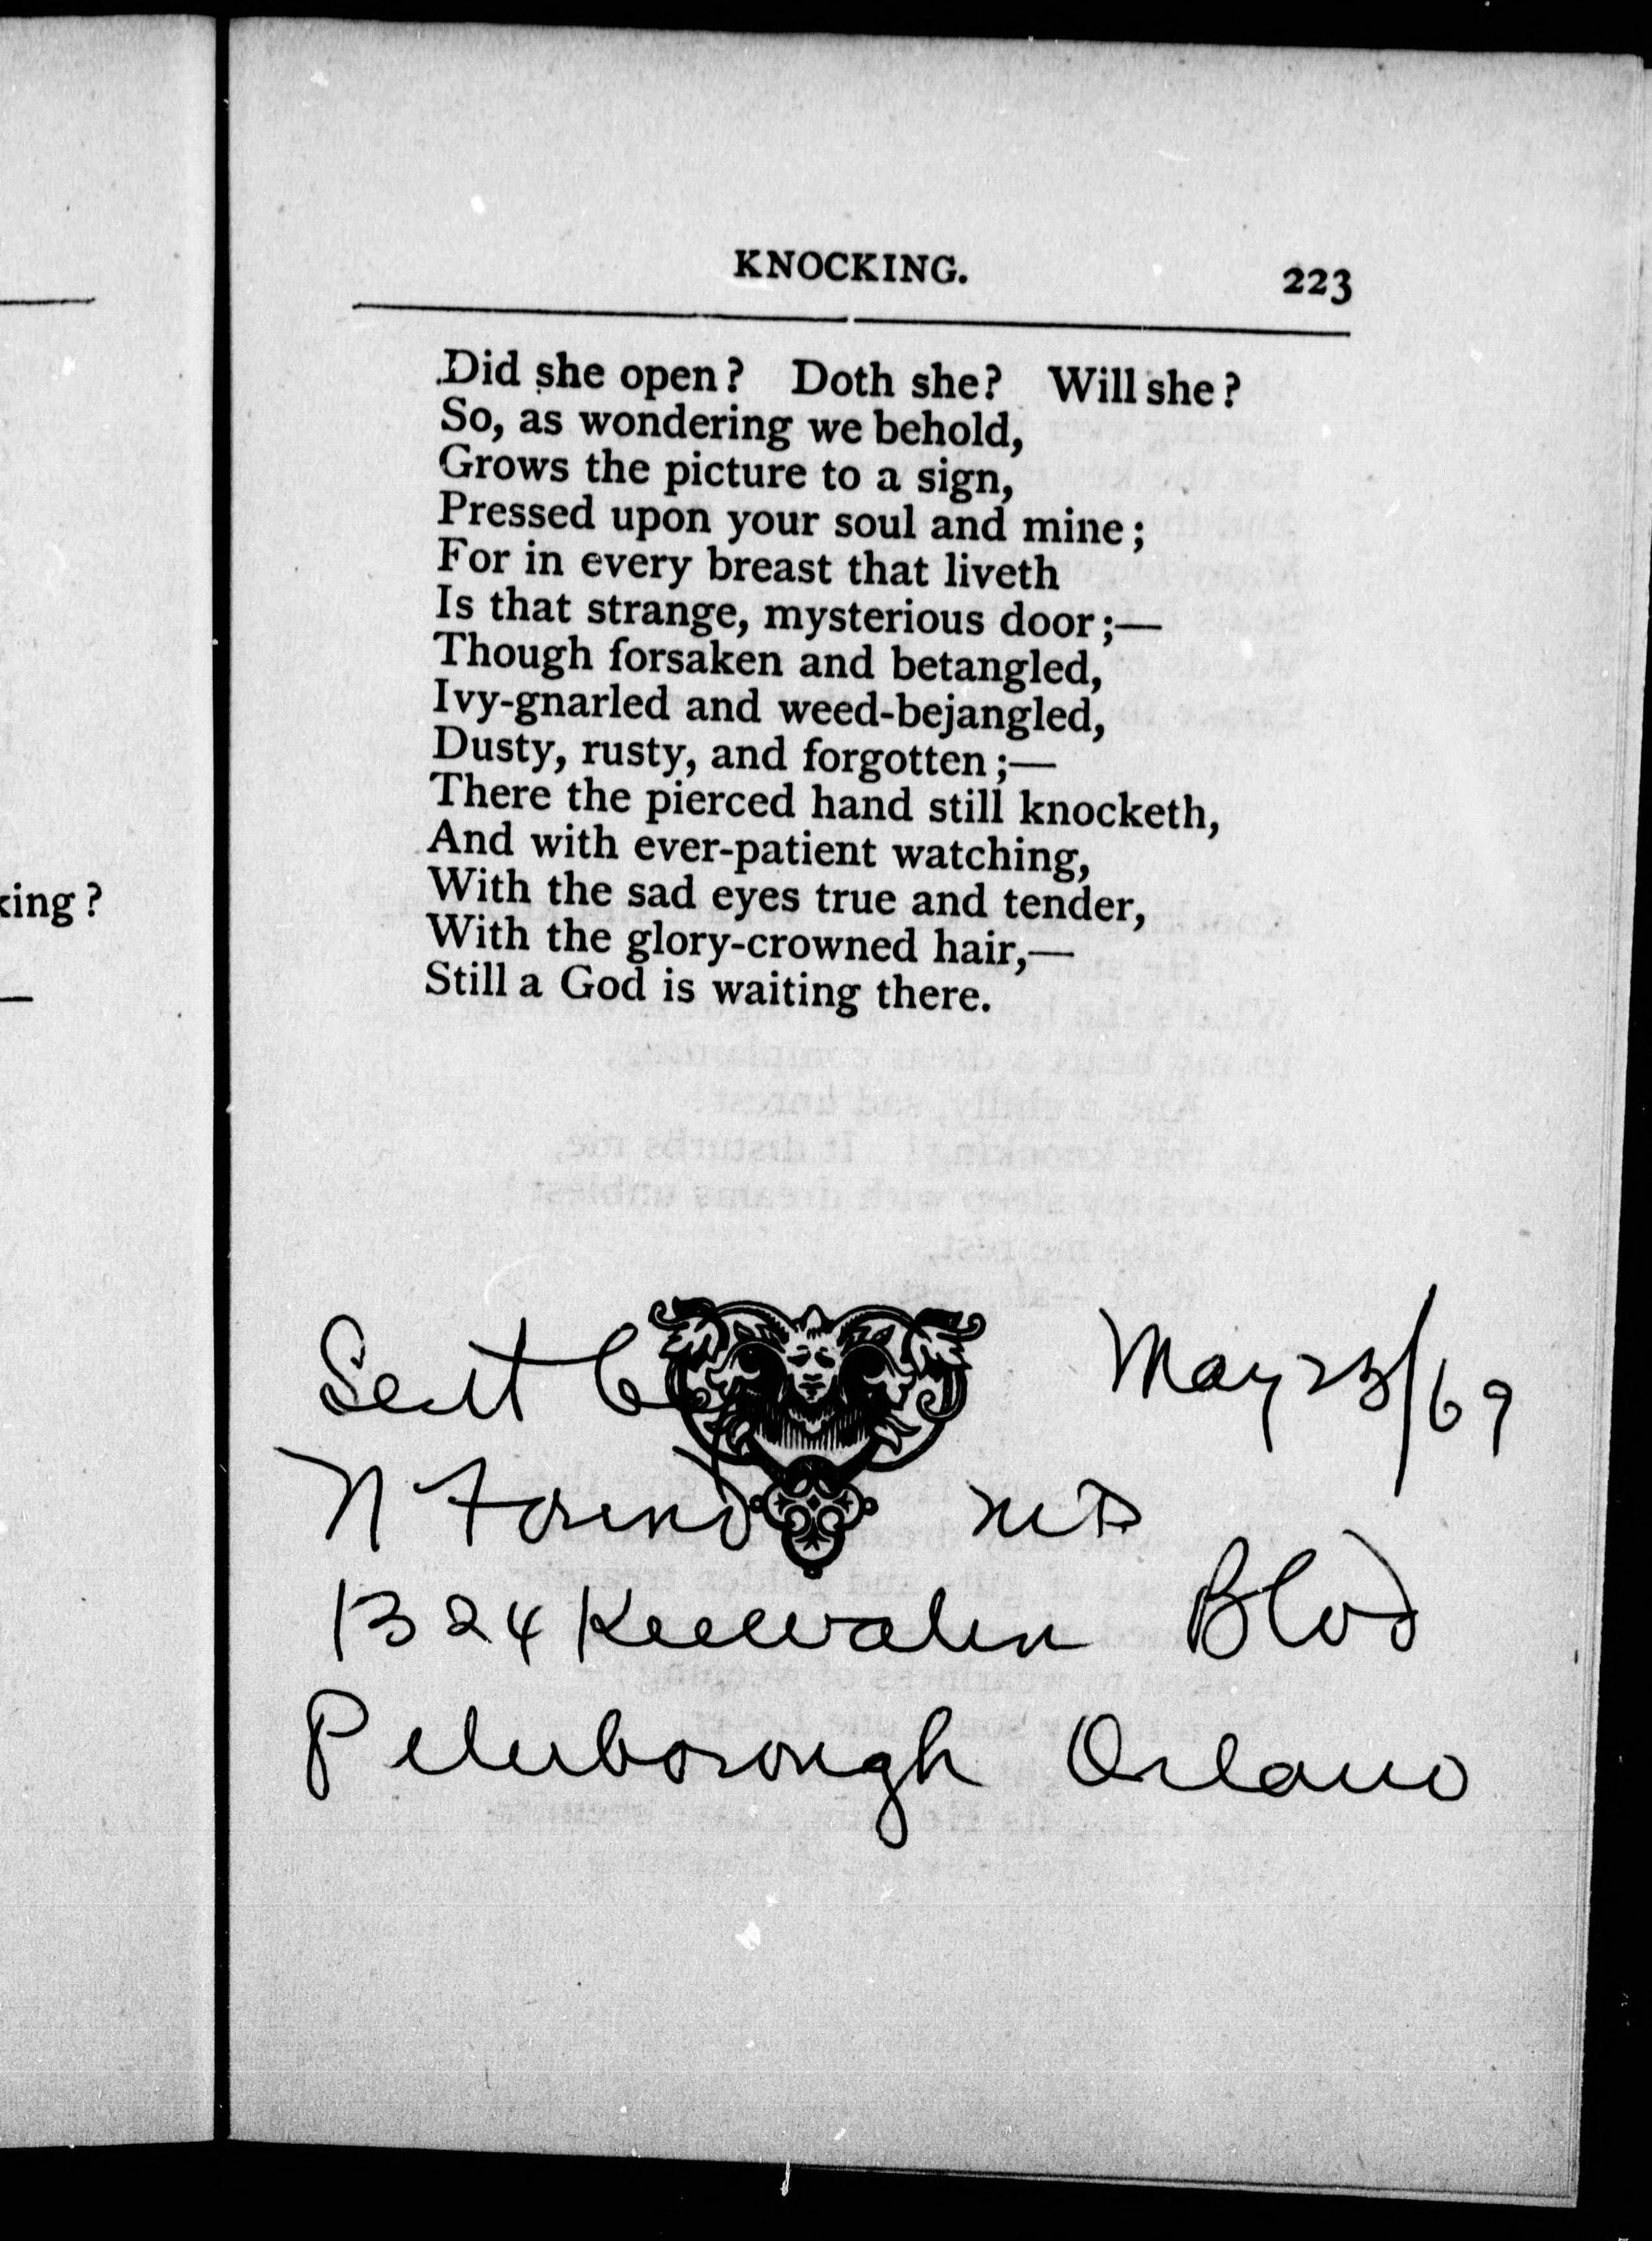 KNOCKING. 223
Did she open? Doth she? Will she?
So, as wondering we behold,
Grows the picture to a sign,
Pressed upon your soul and mine;
For in every breast that liveth
Is that strange, mysterious door;—
Though forsaken and betangled,
Ivy-gnarled and weed-bejangled,
Dusty, rusty, and forgotten;—
There the pierced hand still knocketh,
And with ever-patient watching,
With the sad eyes true and tender,
With the glory-crowned hair,—
Still a God is waiting there.
king?
Sent May 23/69
N MD
1324 Blvd
Peterborough